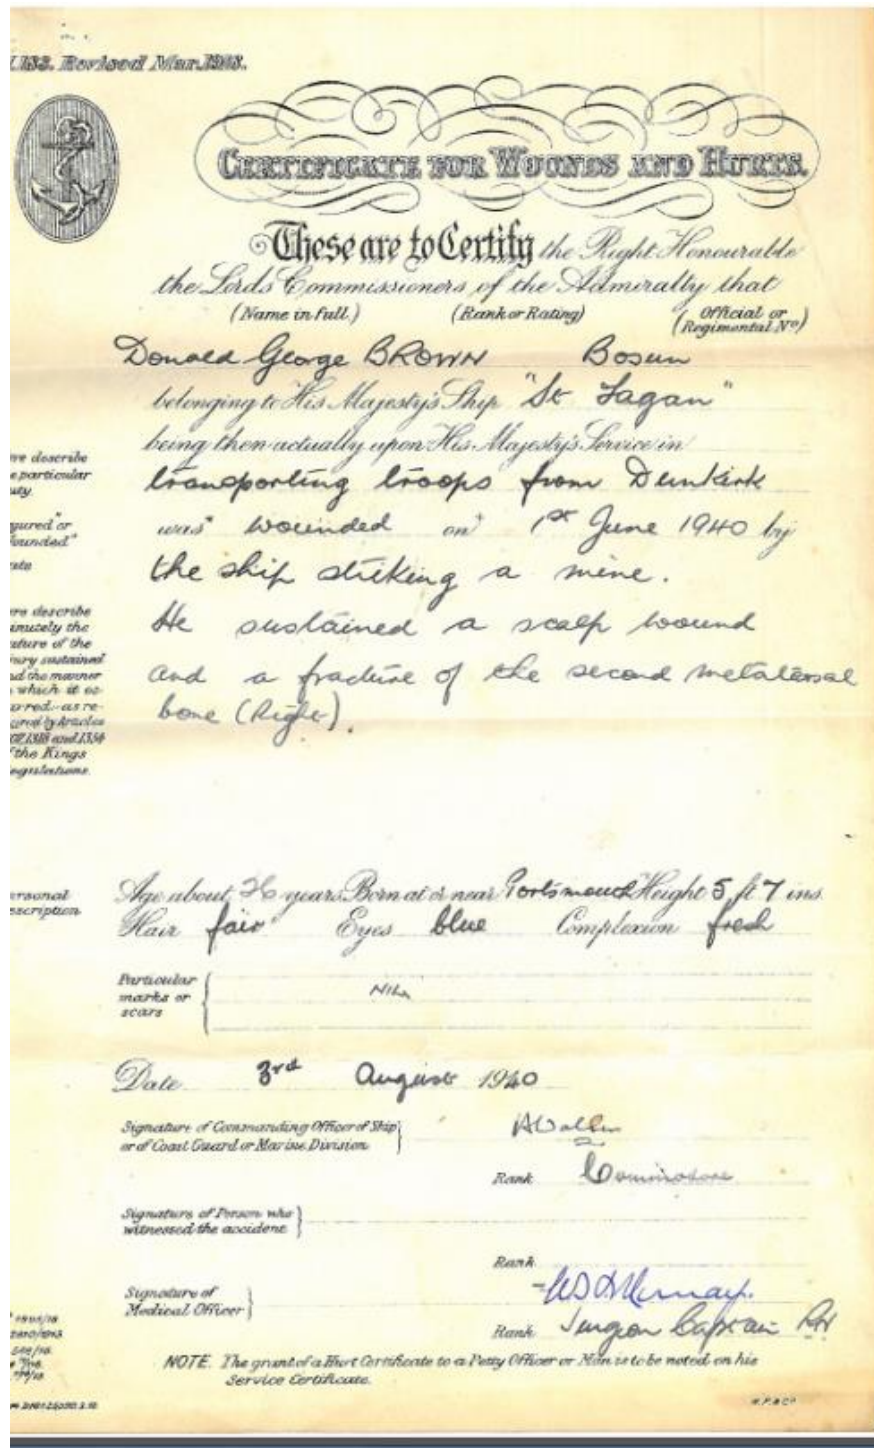 .183. Revised Mar. 1918.
CERTIFICATE FOR WOUNDS AND HURTS.
These are to Certify the Right Honourable
the Lords Commissioners of the Admiralty that
(Name in full.) (Rank or Rating) (Official or Regimental No)
Donald George BROWN Bosun
belonging to His Majesty's Ship "St Fagan"
being then actually upon His Majesty's Service in
transporting troops from Dunkirk
was" wounded on" 1st June 1940 by
the ship striking a mine.
He sustained a scalp wound
and a fracture of the second metatarsal
bone (Right).
re describe
e particular
uty.
jured" or
ounded"
ate
re describe
inutely the
ature of the
jury sustained
nd the manner
which it oc-
rred, as re-
ired by Articles
1318 and 1354
the Kings
egulations.
ersonal
escription
Age about 26 years Born at or near Portsmouth Height 5 ft 7 ins.
Hair fair Eyes blue Complexion fresh
Particular
marks or
scars
NIL
Date 3rd August 1940
Signature of Commanding Officer of Ship
or of Coast Guard or Marine Division
Rank Commodore
Signature of Person who
witnessed the accident
Rank
Signature of
Medical Officer
Rank Surgeon Captain RN
NOTE. The grant of a Hurt Certificate to a Petty Officer or Man is to be noted on his
Service Certificate.